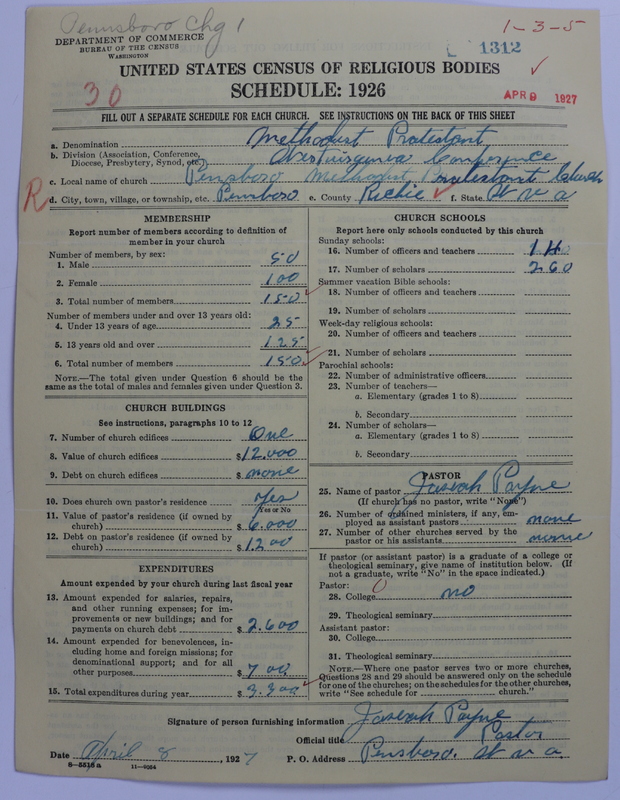 Pennsboro Chg 1
1-3-5
DEPARTMENT OF COMMERCE
BUREAU OF THE CENSUS
WASHINGTON
1312
UNITED STATES CENSUS OF RELIGIOUS BODIES
30
SCHEDULE: 1926
APR 9 1927
FILL OUT A SEPARATE SCHEDULE FOR EACH CHURCH. SEE INSTRUCTIONS ON THE BACK OF THIS SHEET
a. Denomination Methodist Protestant
b. Division (Association, Conference, Diocese, Presbytery, Synod, etc.) Westvirginia Conference
c. Local name of church Pensboro Methodist Protestant Church
R
d. City, town, village, or township, etc. Pensboro e. County Richie f. State W va
MEMBERSHIP
Report number of members according to definition of
member in your church
Number of members, by sex:
1. Male 50
2. Female 100
3. Total number of members 150
Number of members under and over 13 years old:
4. Under 13 years of age 25
5. 13 years old and over 125
6. Total number of members 150
NOTE.—The total given under Question 6 should be the
same as the total of males and females given under Question 3.
CHURCH BUILDINGS
See instructions, paragraphs 10 to 12
7. Number of church edifices One
8. Value of church edifices $12.000
9. Debt on church edifices $none
10. Does church own pastor's residence Yes
Yes or No
11. Value of pastor's residence (if owned by
church) $6.000
12. Debt on pastor's residence (if owned by
church) $1.200
EXPENDITURES
Amount expended by your church during last fiscal year
13. Amount expended for salaries, repairs,
and other running expenses; for im-
provements or new buildings; and for
payments on church debt $2.600
14. Amount expended for benevolences, in-
cluding home and foreign missions; for
denominational support; and for all
other purposes $700
15. Total expenditures during year $3.300
CHURCH SCHOOLS
Report here only schools conducted by this church
Sunday schools:
16. Number of officers and teachers 14
17. Number of scholars 260
Summer vacation Bible schools:
18. Number of officers and teachers
19. Number of scholars
Week-day religious schools:
20. Number of officers and teachers
21. Number of scholars
Parochial schools:
22. Number of administrative officers
23. Number of teachers—
a. Elementary (grades 1 to 8)
b. Secondary
24. Number of scholars—
a. Elementary (grades 1 to 8)
b. Secondary
PASTOR
25. Name of pastor Joseah Payne
(If church has no pastor, write "None")
26. Number of ordained ministers, if any, em-
ployed as assistant pastors none
27. Number of other churches served by the
pastor or his assistants none
If pastor (or assistant pastor) is a graduate of a college or
theological seminary, give name of institution below. (If
not a graduate, write "No" in the space indicated.)
Pastor: 0
28. College no
29. Theological seminary
Assistant pastor:
30. College
31. Theological seminary
NOTE.—Where one pastor serves two or more churches,
Questions 28 and 29 should be answered only on the schedule
for one of the churches; on the schedules for the other churches,
write "See schedule for church."
Signature of person furnishing information Joseah Payne
Official title Pastor
Date April 8, 1927 P. O. Address Pensboro. W va
8-5518 a 11-9064